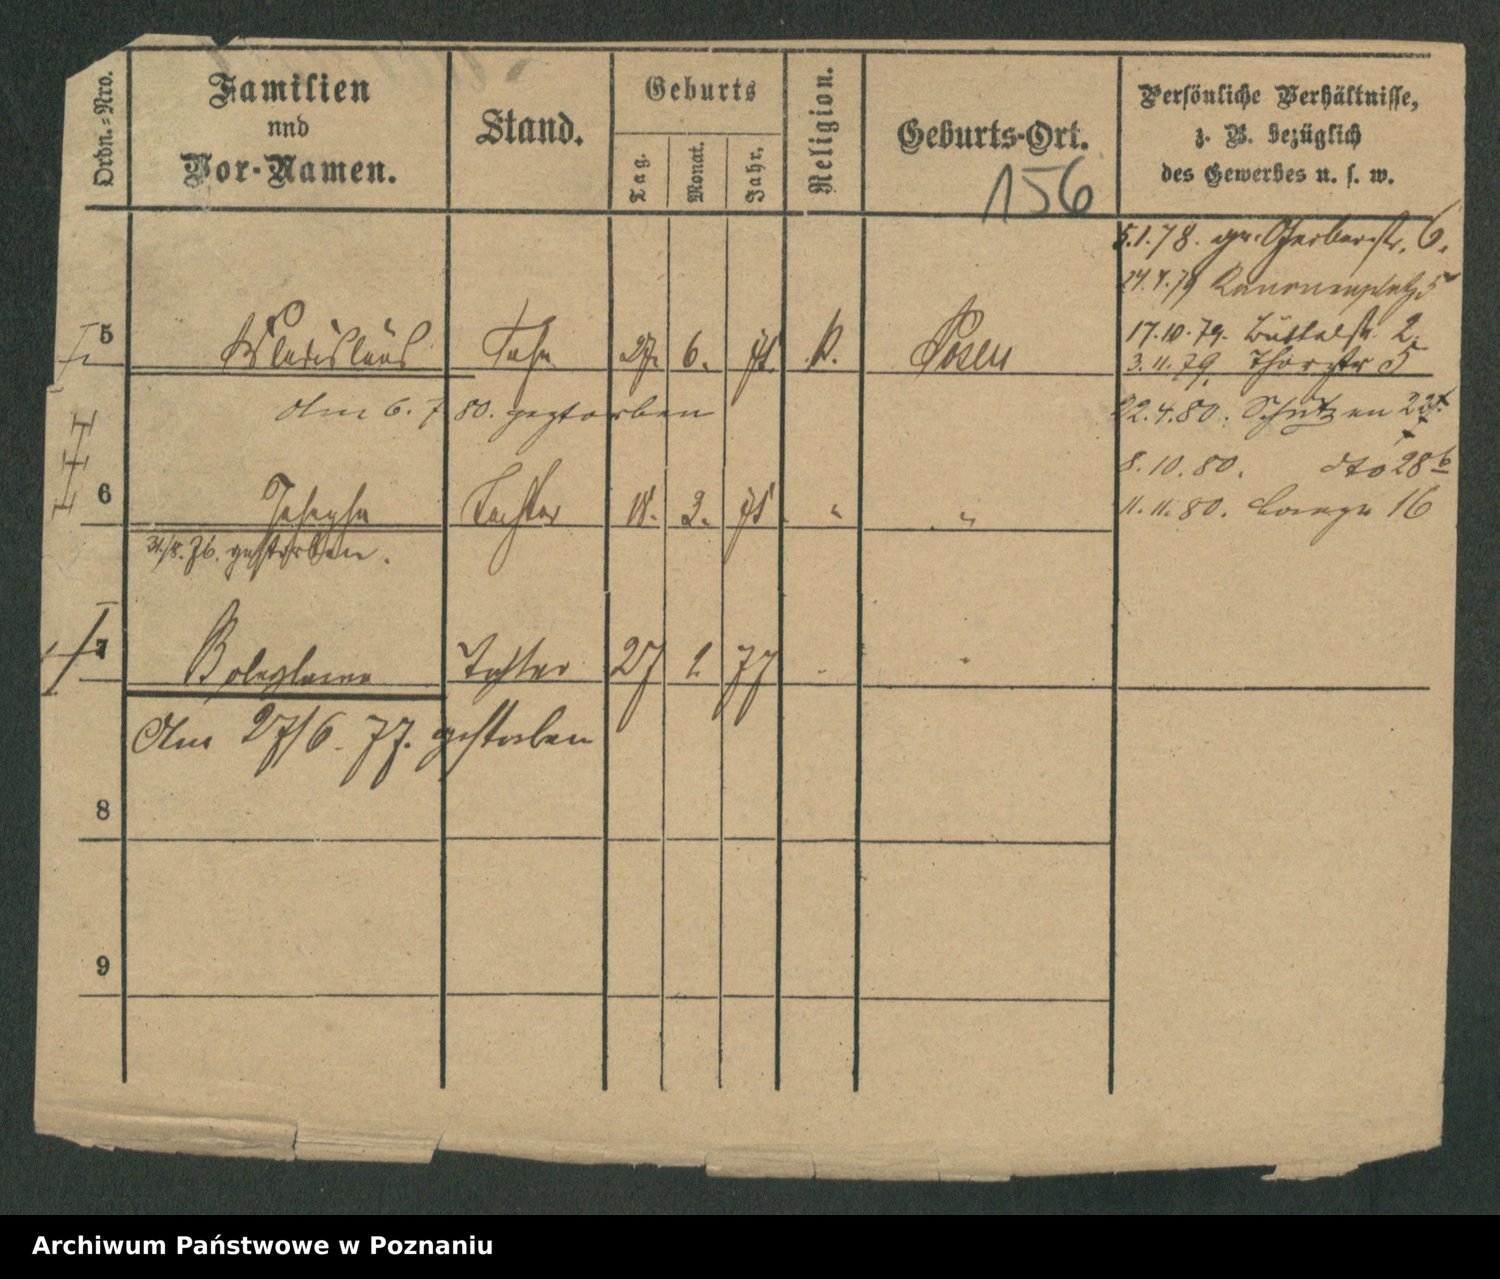 Ordn.-Nro.
Familien
nnd
Vor-Namen.
Stand.
Geburts
Tag.
Monat.
Jahr.
Religion.
Geburts-Ort.
Persönliche Verhältnisse,
z. B. bezüglich
des Gewerbes u. s. w.
156
5.1.78. gr. Gerberstr. 6.
24.4.79 Kanonenplatz 5
17.10.79. Büttelstr. 2.
3.11.79. Thorstr 5
22.4.80. Schützen
8.10.80. dto 28b
11.11.80. Lange 16
5 Wladislaus Sohn 27. 6. K. Posen
Am 6. 7 80. gestorben
6 Josepha Tochter 18. 2. " "
31/8. 76. gestorben.
7 Boleslawa Tochter 27 1. 77
Am 27/6. 77. gestorben
8
9
Archiwum Państwowe w Poznaniu